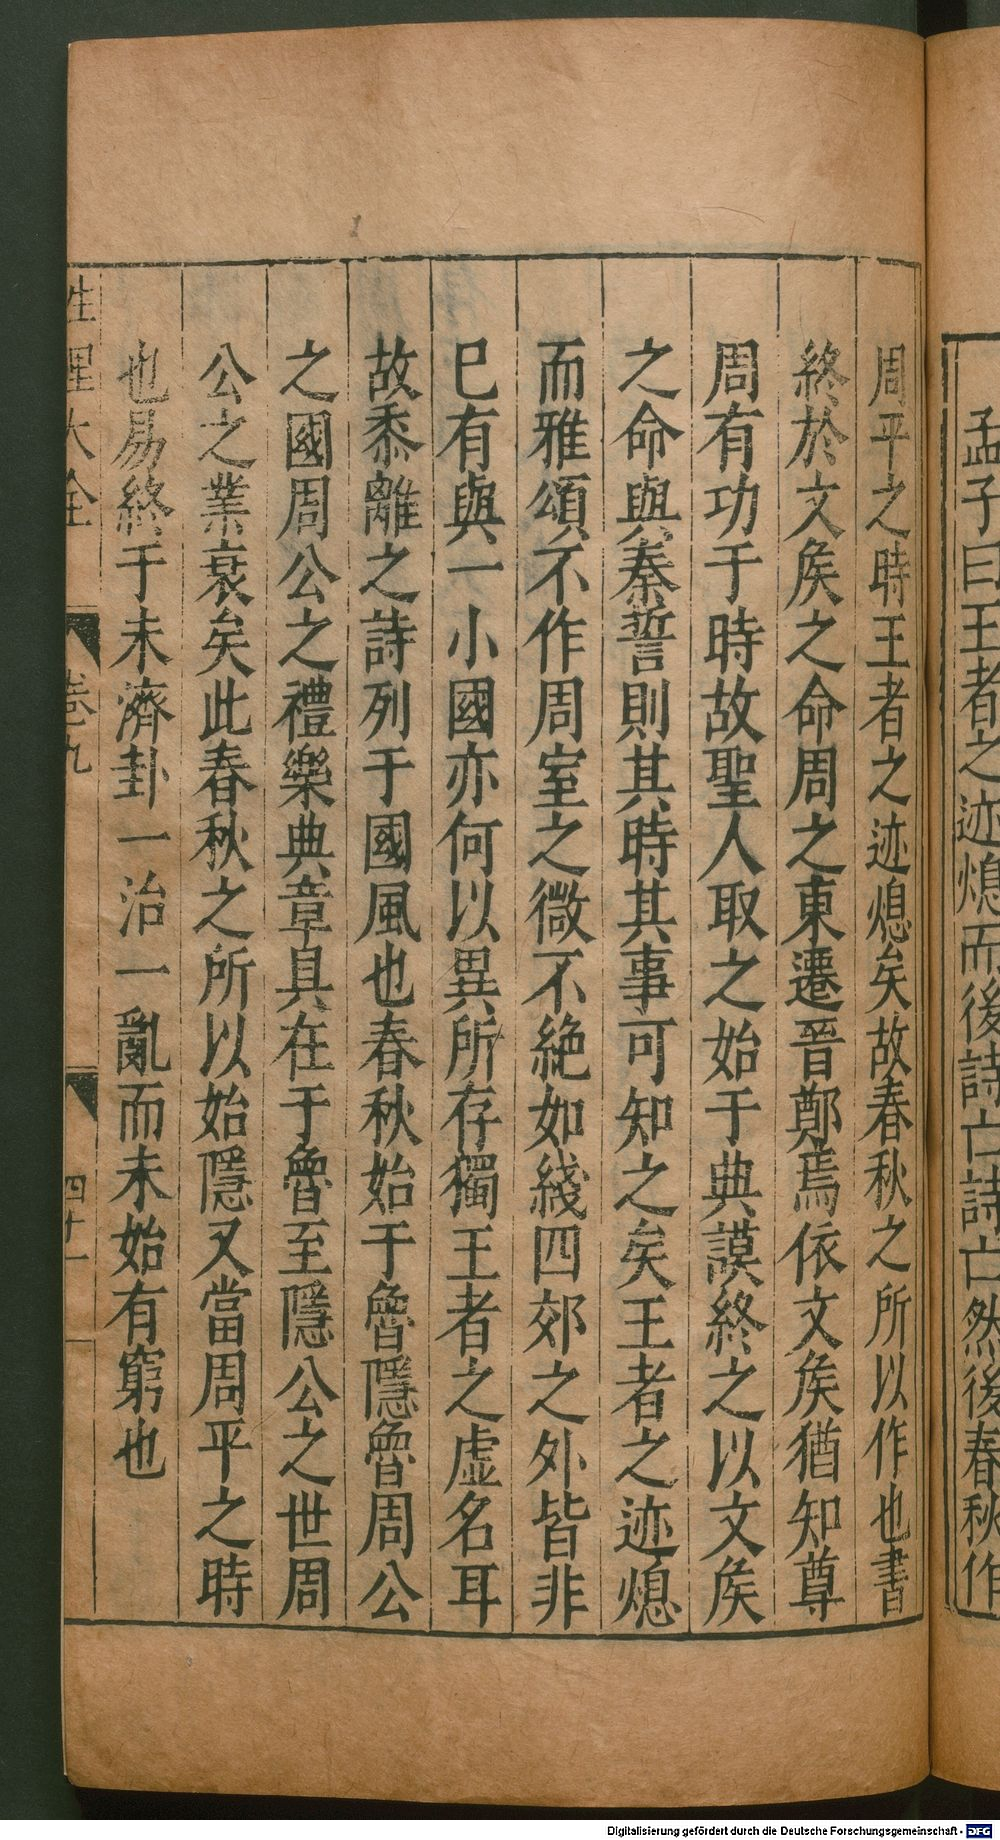 孟子曰王者之迹熄而後詩亡詩亡然後春秋作
周平之時王者之迹熄矣故春秋之所以作也書
終於文矦之命周之東遷晉鄭焉依文矦猶知尊
周有功于時故聖人取之始于典謨終之以文矦
之命與秦誓則其時其事可知之矣王者之迹熄
而雅頌不作周室之微不絶如綫四郊之外皆非
巳有與一小國亦何以異所存獨王者之虛名耳
故黍離之詩列于國風也春秋始于魯隱魯周公
之國周公之禮樂典章具在于魯至隱公之世周
公之業衰矣此春秋之所以始隱又當周平之時
也易終于未濟卦一治一亂而未始有窮也
性理大全 卷九 四十一
Digitalisierung gefördert durch die Deutsche Forschungsgemeinschaft - DFG